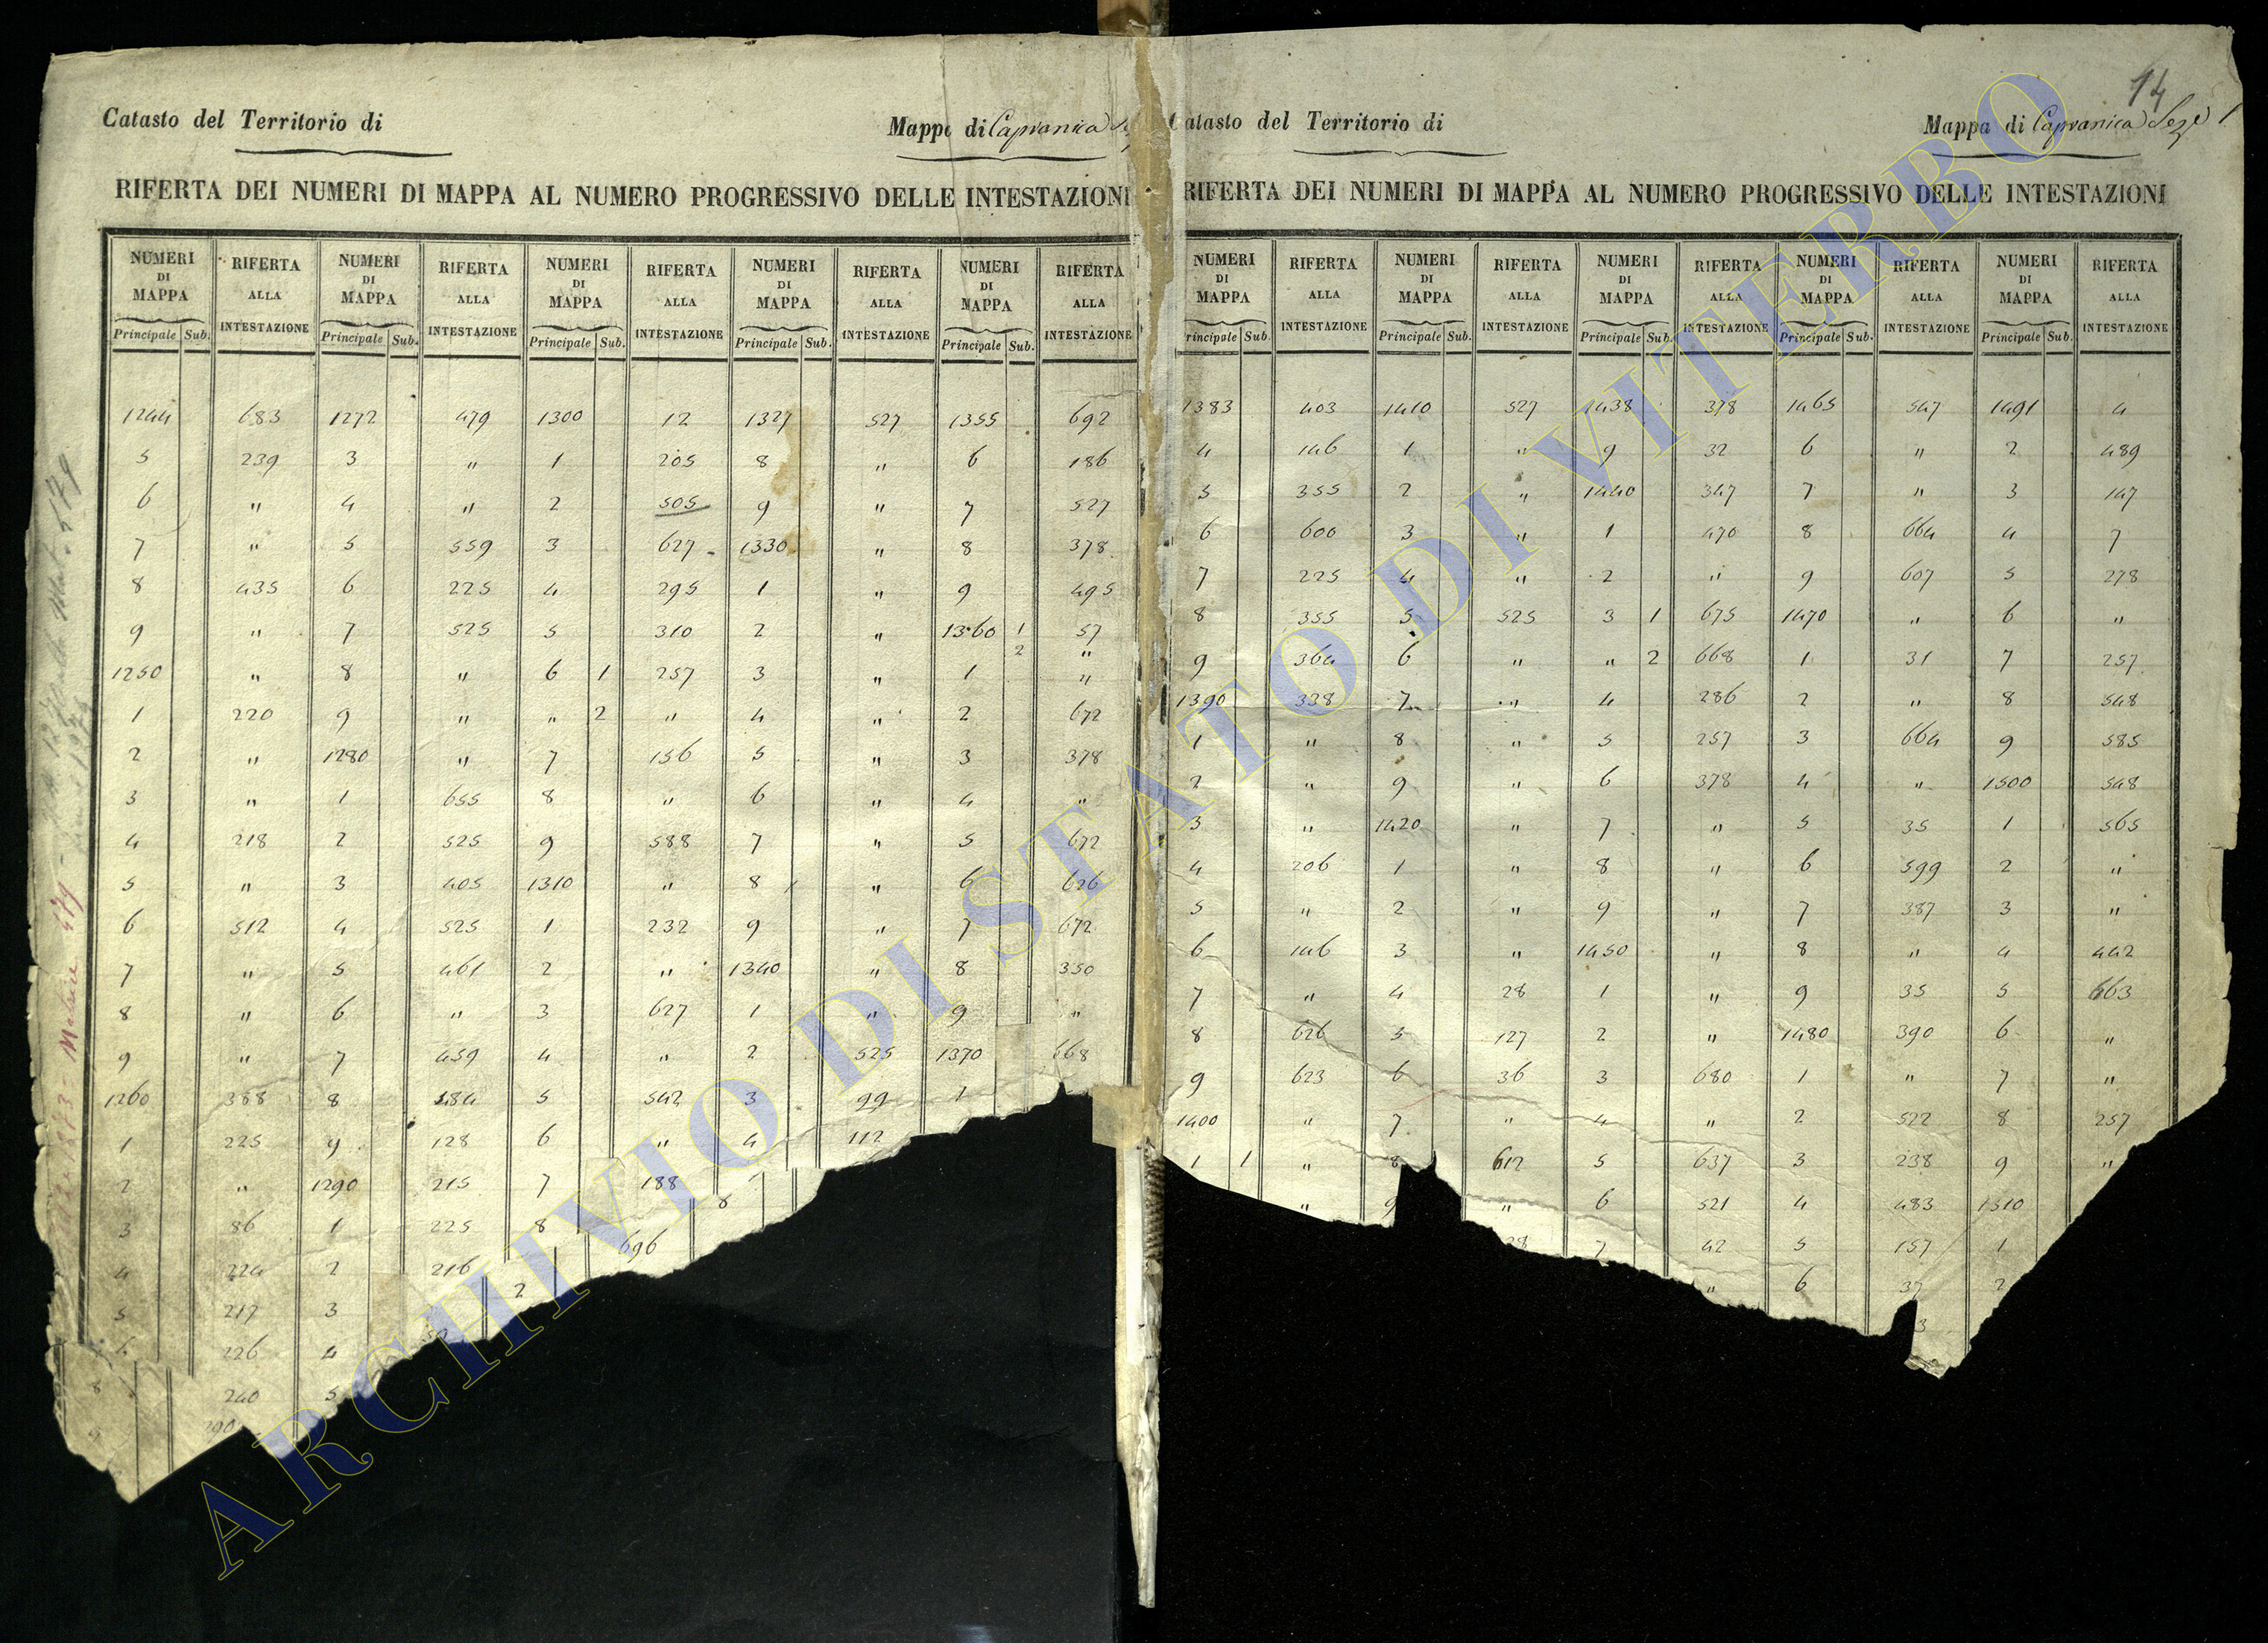 14
Catasto del Territorio di
Mappa di Capranica Sez
RIFERTA DEI NUMERI DI MAPPA AL NUMERO PROGRESSIVO DELLE INTESTAZIONI
NUMERI DI MAPPA RIFERTA ALLA INTESTAZIONE NUMERI DI MAPPA RIFERTA ALLA INTESTAZIONE NUMERI DI MAPPA RIFERTA ALLA INTESTAZIONE NUMERI DI MAPPA RIFERTA ALLA INTESTAZIONE NUMERI DI MAPPA RIFERTA ALLA INTESTAZIONE
Principale Sub. Principale Sub. Principale Sub. Principale Sub. Principale Sub.
1244 683 1272 479 1300 12 1327 527 1355 692
5 239 3 " 1 205 8 " 6 186
6 " 4 " 2 505 9 " 7 527
7 " 5 559 3 627 1330 " 8 378
8 435 6 225 4 295 1 " 9 495
9 " 7 525 5 310 2 " 1360 1 57
2 "
1250 " 8 " 6 1 257 3 " 1 "
1 220 9 " " 2 " 4 " 2 672
2 " 1280 " 7 156 5 " 3 378
3 " 1 655 8 " 6 " 4 "
4 218 2 525 9 588 7 " 5 672
5 " 3 405 1310 " 8 " 6 626
6 512 4 525 1 232 9 " 7 672
7 " 5 461 2 " 1340 " 8 350
8 " 6 " 3 627 1 " 9 "
9 " 7 459 4 " 2 525 1370 668
1260 388 8 484 5 542 3 99 1
1 225 9 128 6 " 4 112
2 " 1290 215 7 188
3 86 1 225 8 696 8
4 224 2 216 2
5 217 3
6 226 4
8 240 5
9 290
Catasto del Territorio di
Mappa di Capranica Sez.e 1.
RIFERTA DEI NUMERI DI MAPPA AL NUMERO PROGRESSIVO DELLE INTESTAZIONI
NUMERI DI MAPPA RIFERTA ALLA INTESTAZIONE NUMERI DI MAPPA RIFERTA ALLA INTESTAZIONE NUMERI DI MAPPA RIFERTA ALLA INTESTAZIONE NUMERI DI MAPPA RIFERTA ALLA INTESTAZIONE NUMERI DI MAPPA RIFERTA ALLA INTESTAZIONE
Principale Sub. Principale Sub. Principale Sub. Principale Sub. Principale Sub.
1383 403 1410 527 1438 378 1465 547 1491 4
4 146 1 " 9 32 6 " 2 489
5 355 2 " 1440 347 7 " 3 147
6 600 3 " 1 470 8 664 4 7
7 225 4 " 2 " 9 607 5 278
8 355 5 525 3 1 675 1470 " 6 "
9 364 6 " " 2 668 1 31 7 257
1390 338 7 " 4 286 2 " 8 548
1 " 8 " 5 257 3 664 9 585
2 " 9 " 6 378 4 " 1500 548
3 " 1420 " 7 " 5 35 1 565
4 206 1 " 8 " 6 599 2 "
5 " 2 " 9 " 7 387 3 "
6 146 3 " 1450 " 8 " 4 442
7 " 4 28 1 " 9 35 5 663
8 626 5 127 2 " 1480 390 6 "
9 623 6 36 3 680 1 " 7 "
1400 " 7 " 4 " 2 522 8 257
1 1 " 8 612 5 637 3 238 9 "
" 9 " 6 521 4 483 1510
28 7 42 5 157 1
" 6 37 2
3
ARCHIVIO DI STATO DI VITERBO